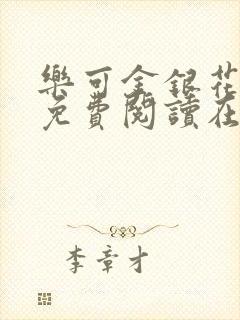 樂可金銀花
免費閱讀在
李章才